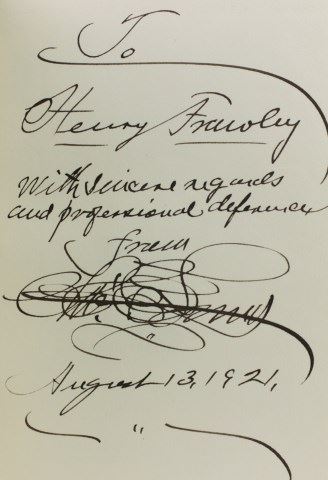 To
Henry Frawley
With sincere regards
and professional deference
from
August 13, 1921.
"